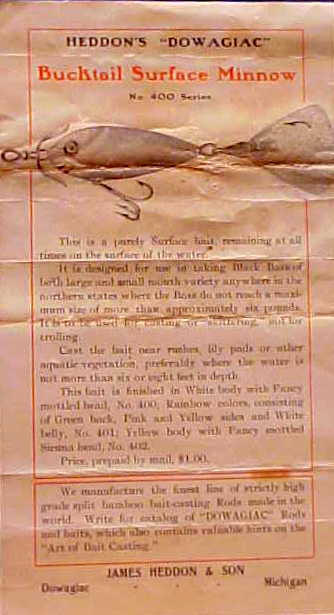 HEDDON'S "DOWAGIAC"
Bucktail Surface Minnow
No. 400 Series
This is a purely Surface bait, remaining at all
times on the surface of the water.
It is designed for use in taking Black Bass of
both large and small mouth variety anywhere in the
northern states where the Bass do not reach a maxi-
mum size of more than approximately six pounds.
It is to be used for casting or skittering, not for
trolling.
Cast the bait near rushes, lily pads or other
aquatic vegetation, preferably where the water is
not more than six or eight feet in depth.
This bait is finished in White body with Fancy
mottled head, No. 400; Rainbow colors, consisting
of Green back, Pink and Yellow sides and White
belly, No. 401; Yellow body with Fancy mottled
Sienna head, No. 402.
Price, prepaid by mail, $1.00.
We manufacture the finest line of strictly high
grade split bamboo bait-casting Rods made in the
world. Write for catalog of "DOWAGIAC" Rods
and baits, which also contains valuable hints on the
"Art of Bait Casting."
JAMES HEDDON & SON
Dowagiac - - - Michigan